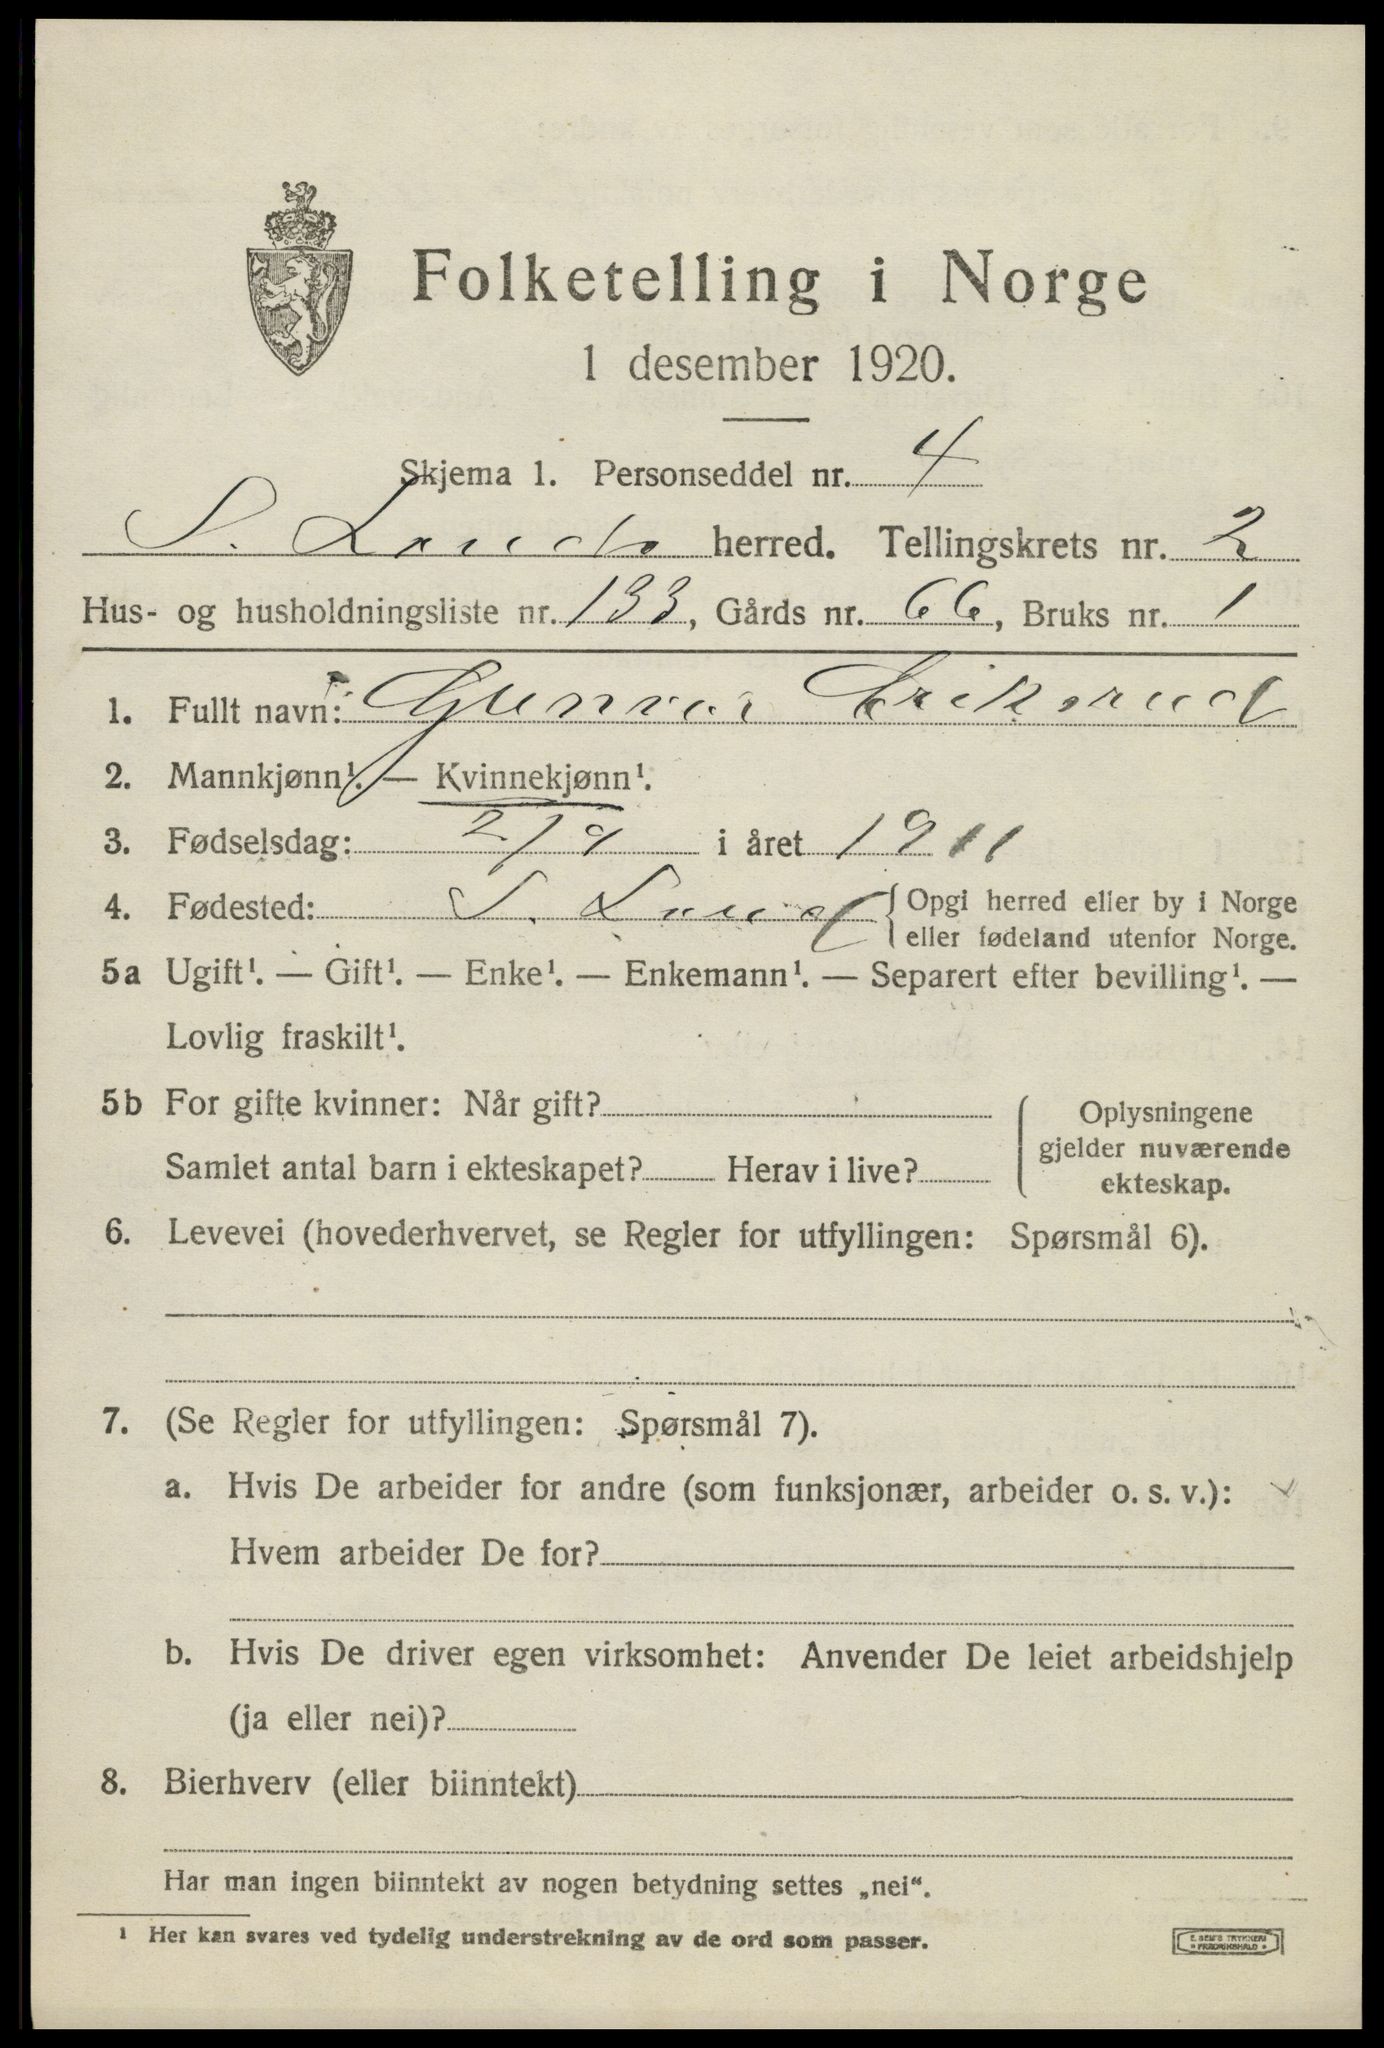 Folketelling i Norge
1 desember 1920.
Skjema 1. Personseddel nr. 4
S. Lands herred. Tellingskrets nr. 2
Hus- og husholdningsliste nr. 133, Gårds nr. 66, Bruks nr. 1
1. Fullt navn: Gunvor Eriksrud
2. Mannkjønn¹. — Kvinnekjønn¹.
3. Fødselsdag: 2/9 i året 1911
4. Fødested: S. Land { Opgi herred eller by i Norge
eller fødeland utenfor Norge.
5a Ugift¹. — Gift¹. — Enke¹. — Enkemann¹. — Separert efter bevilling¹. —
Lovlig fraskilt¹.
5b For gifte kvinner: Når gift?
Samlet antal barn i ekteskapet? Herav i live?
Oplysningene
gjelder nuværende
ekteskap.
6. Levevei (hovederhvervet, se Regler for utfyllingen: Spørsmål 6).
7. (Se Regler for utfyllingen: Spørsmål 7).
a. Hvis De arbeider for andre (som funksjonær, arbeider o. s. v.):
Hvem arbeider De for?
b. Hvis De driver egen virksomhet: Anvender De leiet arbeidshjelp
(ja eller nei)?
8. Bierhverv (eller biinntekt)
Har man ingen biinntekt av nogen betydning settes „nei“.
¹ Her kan svares ved tydelig understrekning av de ord som passer.
E. SEM'S TRYKKERI
FREDRIKSHALD